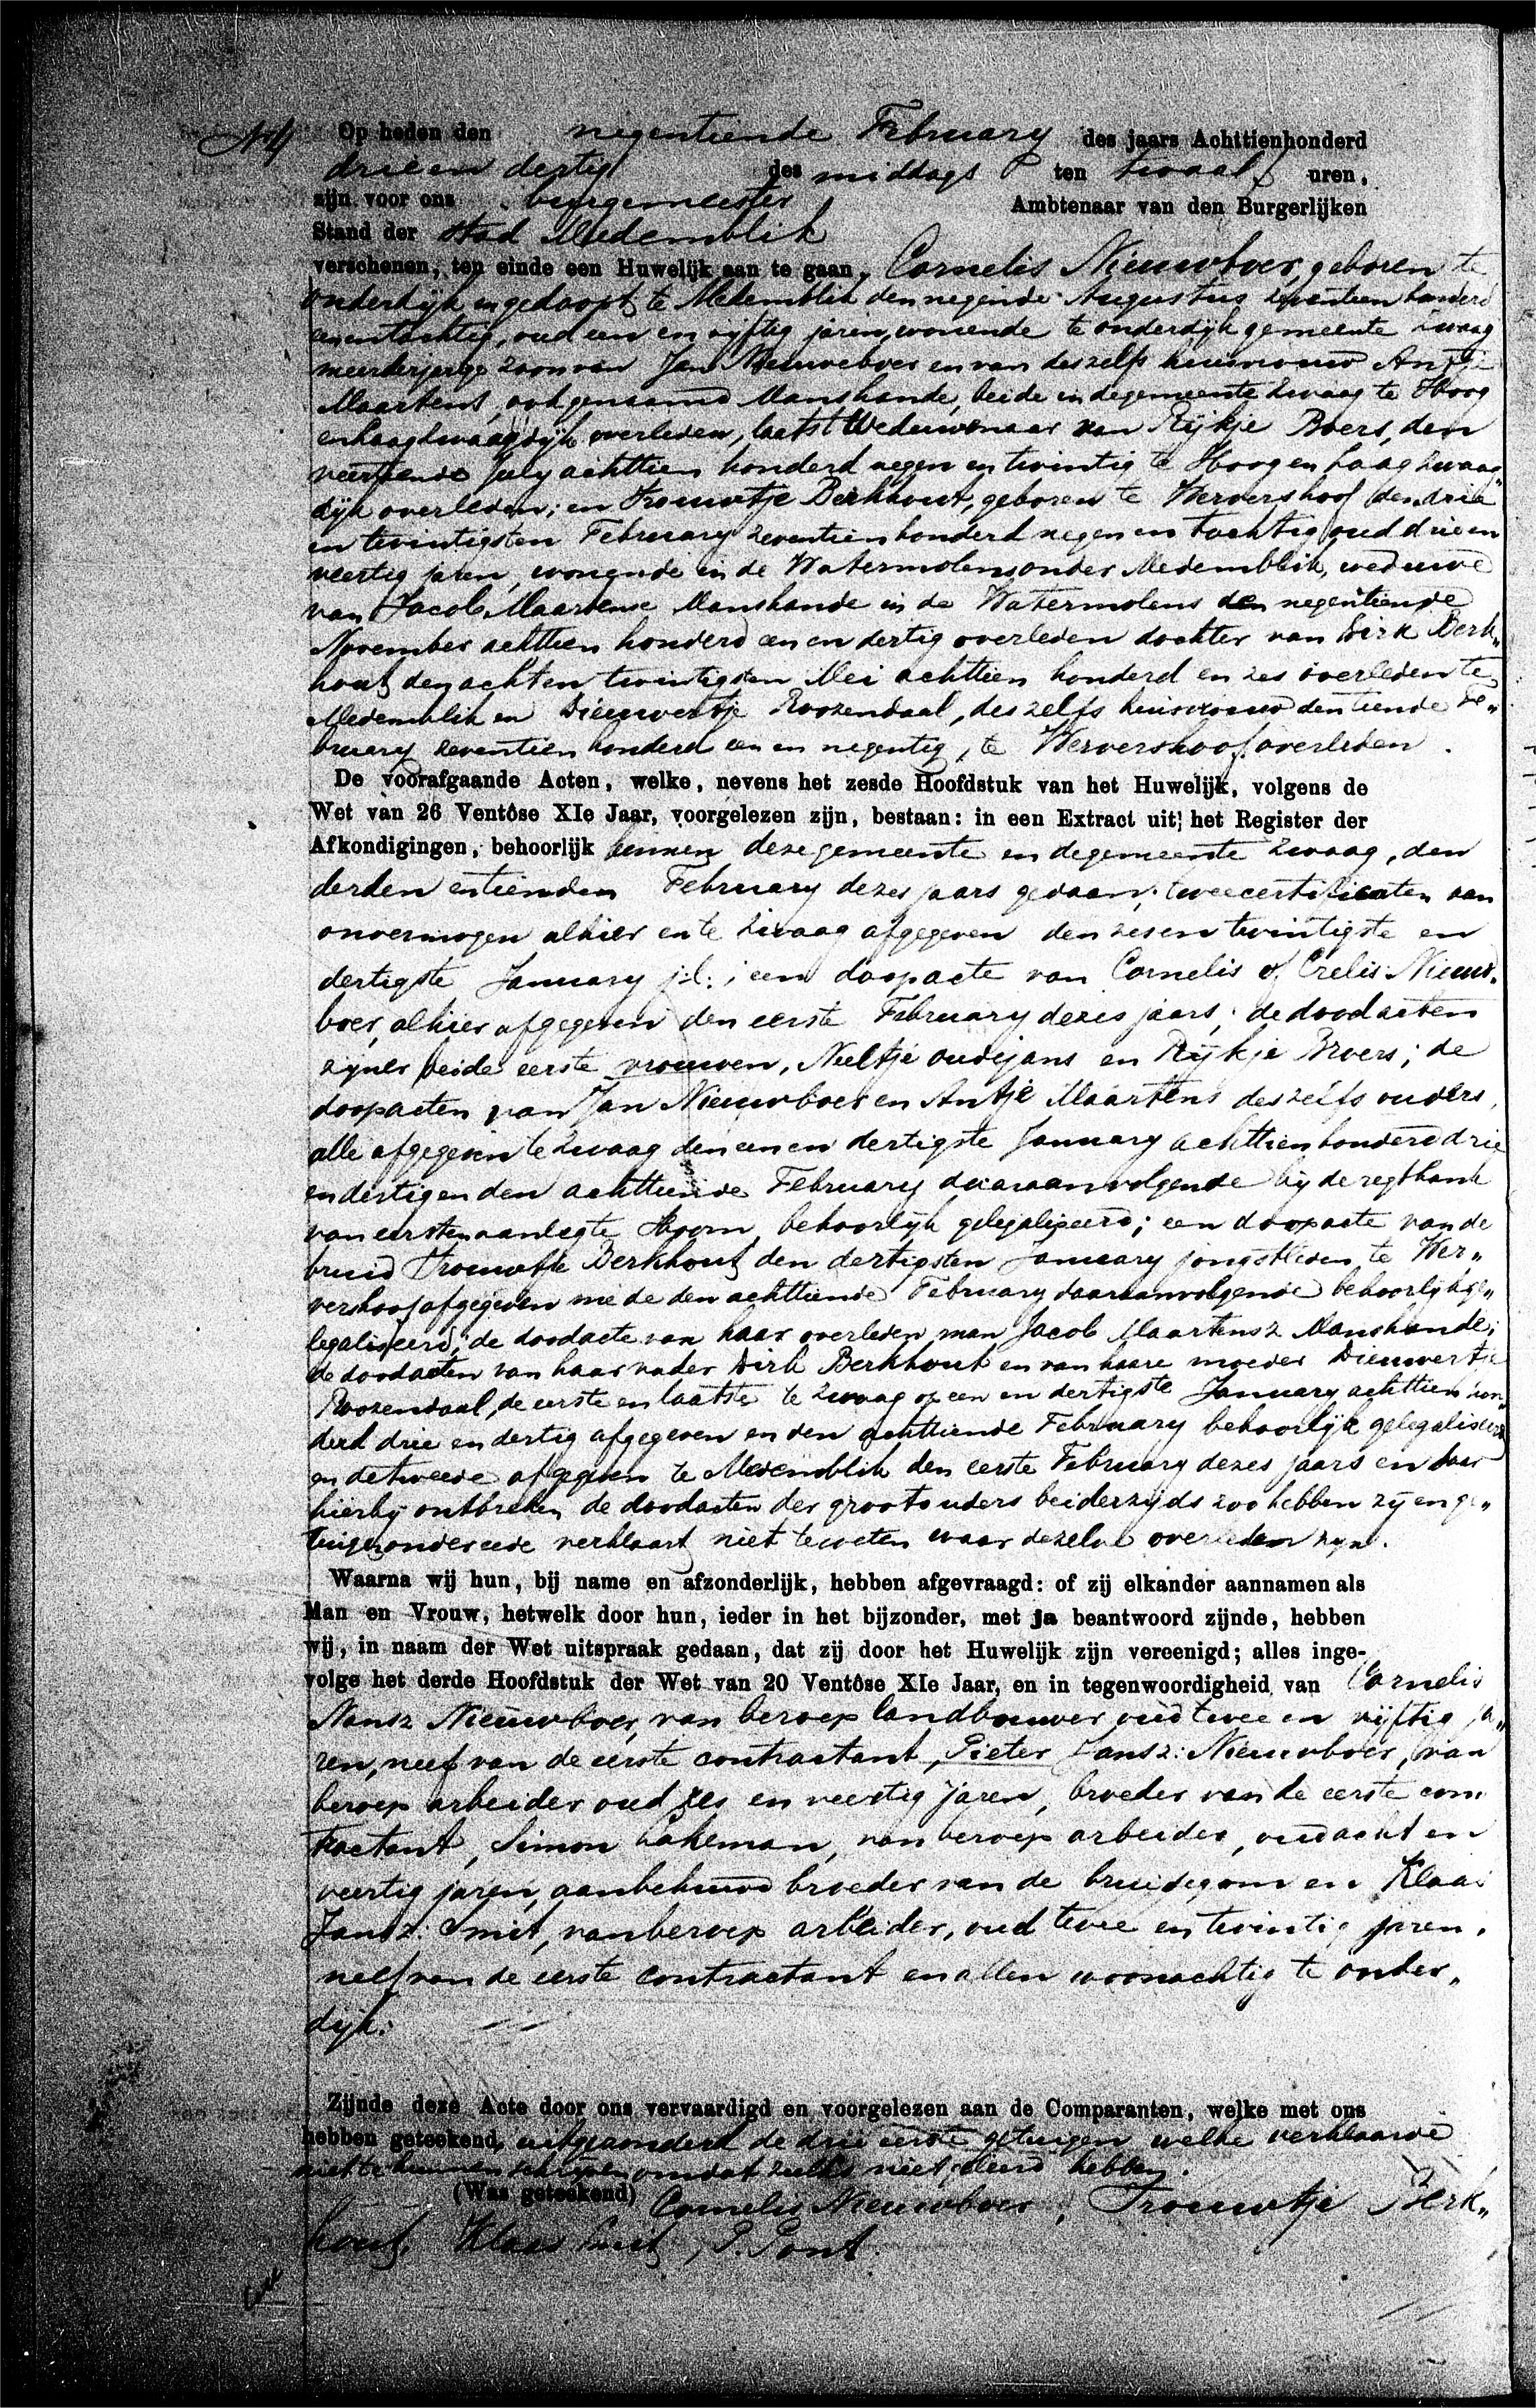 N4 Op heden den negentiende February des jaars Achttienhonderd
drie en dertig des middags ten twaalf uren,
zijn voor ons burgemeester Ambtenaar van den Burgerlijken
Stand der Stad Medemblik
verschenen, ten einde een Huwelijk aan te gaan, Cornelis Nieuwboer, geboren te
onderdijk en gedoopt te Medemblik den negende Augustus zeventien honderd
een en tachtig, oud een en vijftig jaren, wonende te onderdijk gemeente Zwaag
meerderjarige zoon van Jan Nieuweboer en van deszelfs huisvrouw Antje
Maartens, ook genaamd Manshande, beide in de gemeente Zwaag te Hoog
en haaghwaagdijk overleden, laatst Weduwenaar van Rijkje Broers, den
veertiende July achttien honderd negen en twintig te Hoog en haag zwaag"
dijk overleden; en Trouwtje Berkhout, geboren te Wervershoof den drie
en twintigsten February zeventien honderd negen en tachtig, oud drie en
veertig jaren, wonende in de Watermolens onder Medemblik, weduwe
van Jacob Maartensz Manshande in de Watermolens den negentiende
November achttien honderd een en dertig overleden dochter van Dirk Berk"
hout den acht en twintigsten Mei achttien honderd en zes overleden te
Medemblik en Dieuwertje Roozendaal, deszelfs huisvrouw den tiende Fe"
bruary zeventien honderd een en negentig, te Wervershoof overleden.
De voorafgaande Acten, welke, nevens het zesde Hoofdstuk van het Huwelijk, volgens de
Wet van 26 Ventôse XIe Jaar, voorgelezen zijn, bestaan: in een Extract uit het Register der
Afkondigingen, behoorlijk binnen deze gemeente en de gemeente Zwaag, den
derden en tienden February dezes jaars gedaan; twee certificaten van
onvermogen alhier en te Zwaag afgegeven den zes en twintigste en
dertigste January j.l.; een doopacte van Cornelis of Crelis Nieuw"
boer, alhier afgegeven den eerste February dezes jaars; de doodacten
zijner beide eerste vrouwen, Neeltje oudejans en Rijkje Broers; de
doopacten van Jan Nieuwboer en Antje Maartens deszelfs ouders,
alle afgegeven te Zwaag den een en dertigste January achttien honderd drie
en dertig en den achttiende February daaraanvolgende bij de regtbank
van eersten aanlegte Hoorn behoorlijk gelegaliseerd; een doopacte van de
bruid Trouwtje Berkhout den dertigsten January jongstleden te Wer"
vershoof afgegeven mede den achttiende February daaraanvolgende behoorlijk ge"
legaliseerd; de doodacte van haar overleden man Jacob Maartensz Manshande;
de doodacten van haar vader Dirk Berkhout en van haare moeder Dieuwertje
Roozendaal, de eerste en laatste te Zwaag op een en dertigste January achttien hon"
derd drie en dertig afgegeven en den achttiende February behoorlijk gelegaliseerd
en de tweede afgegeven te Medemblik den eerste February dezes jaars en daar
hierbij ontbreken de doodacten der grootouders beiderzijds zoo hebben zij en ge"
tuigen onder eede verklaart niet te weten waar dezelve overleden zijn.
Waarna wij hun, bij name en afzonderlijk, hebben afgevraagd: of zij elkander aannamen als
Man en Vrouw, hetwelk door hun, ieder in het bijzonder, met ja beantwoord zijnde, hebben
wij, in naam der Wet uitspraak gedaan, dat zij door het Huwelijk zijn vereenigd; alles inge-
volge het derde Hoofdstuk der Wet van 20 Ventôse XIe Jaar, en in tegenwoordigheid van Cornelis
Nansz Nieuwboer, van beroep landbouwer oud twee en vijftig ja"
ren, neef van de eerste contractant, Pieter Jansz: Nieuwboer, van
beroep arbeider oud zes en veertig jaren, broeder van de eerste con"
tractant, Simon Lakeman, van beroep arbeider, oud acht en
veertig jaren, aanbehuwd broeder van de bruidegom en Klaas
Jansz: Smit, van beroep arbeider, oud twee en twintig jaren,
neef van de eerste contractant en allen woonachtig te onder"
dijk.
Zijnde deze Acte door ons vervaardigd en voorgelezen aan de Comparanten, welke met ons
hebben geteekend, uitgezonderd de drie eerste getuigen welke verklaarde
niet te kunnen schrijven omdat zulks niet geleerd hebben.
(Was geteekend) Cornelis Nieuwboer, Trouwtje Berk"
hout, Klaas Smit, P. Pont.